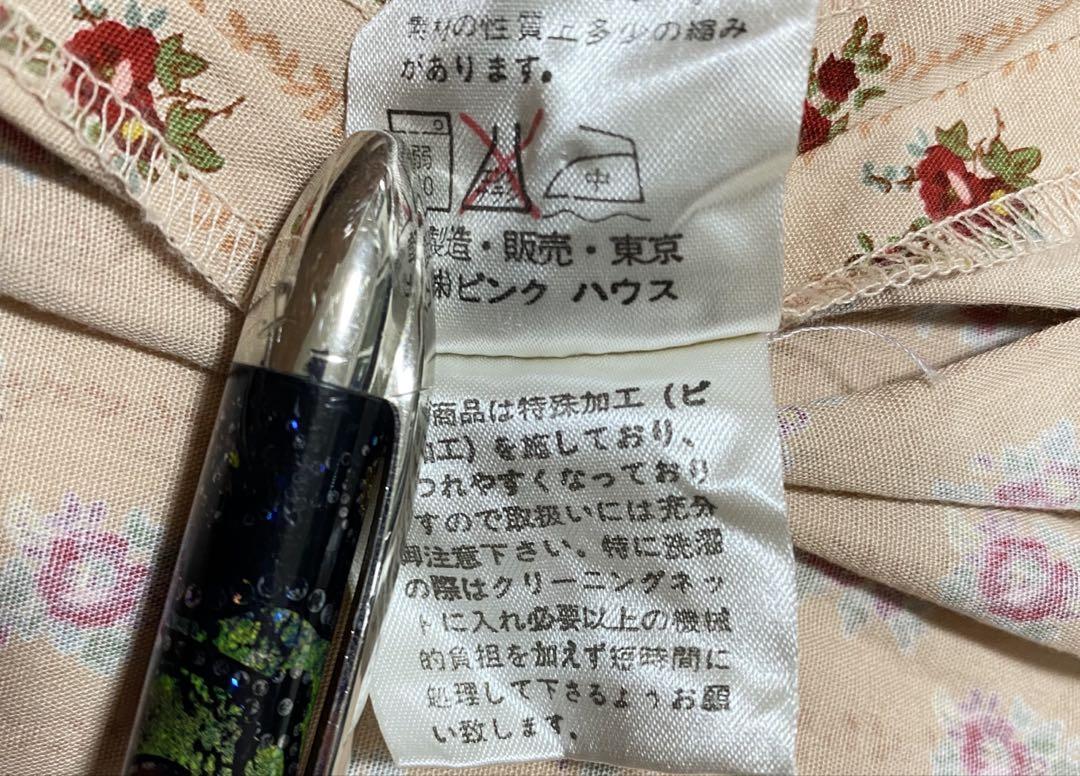 素材の性質上多少の縮み
があります。
弱
0
中
製造・販売・東京
㈱ピンク ハウス
商品は特殊加工(ピ
加工)を施しており、
つれやすくなっており
すので取扱いには充分
御注意下さい。特に洗濯
の際はクリーニングネッ
トに入れ必要以上の機械
的負担を加えず短時間に
処理して下さるようお願
い致します。